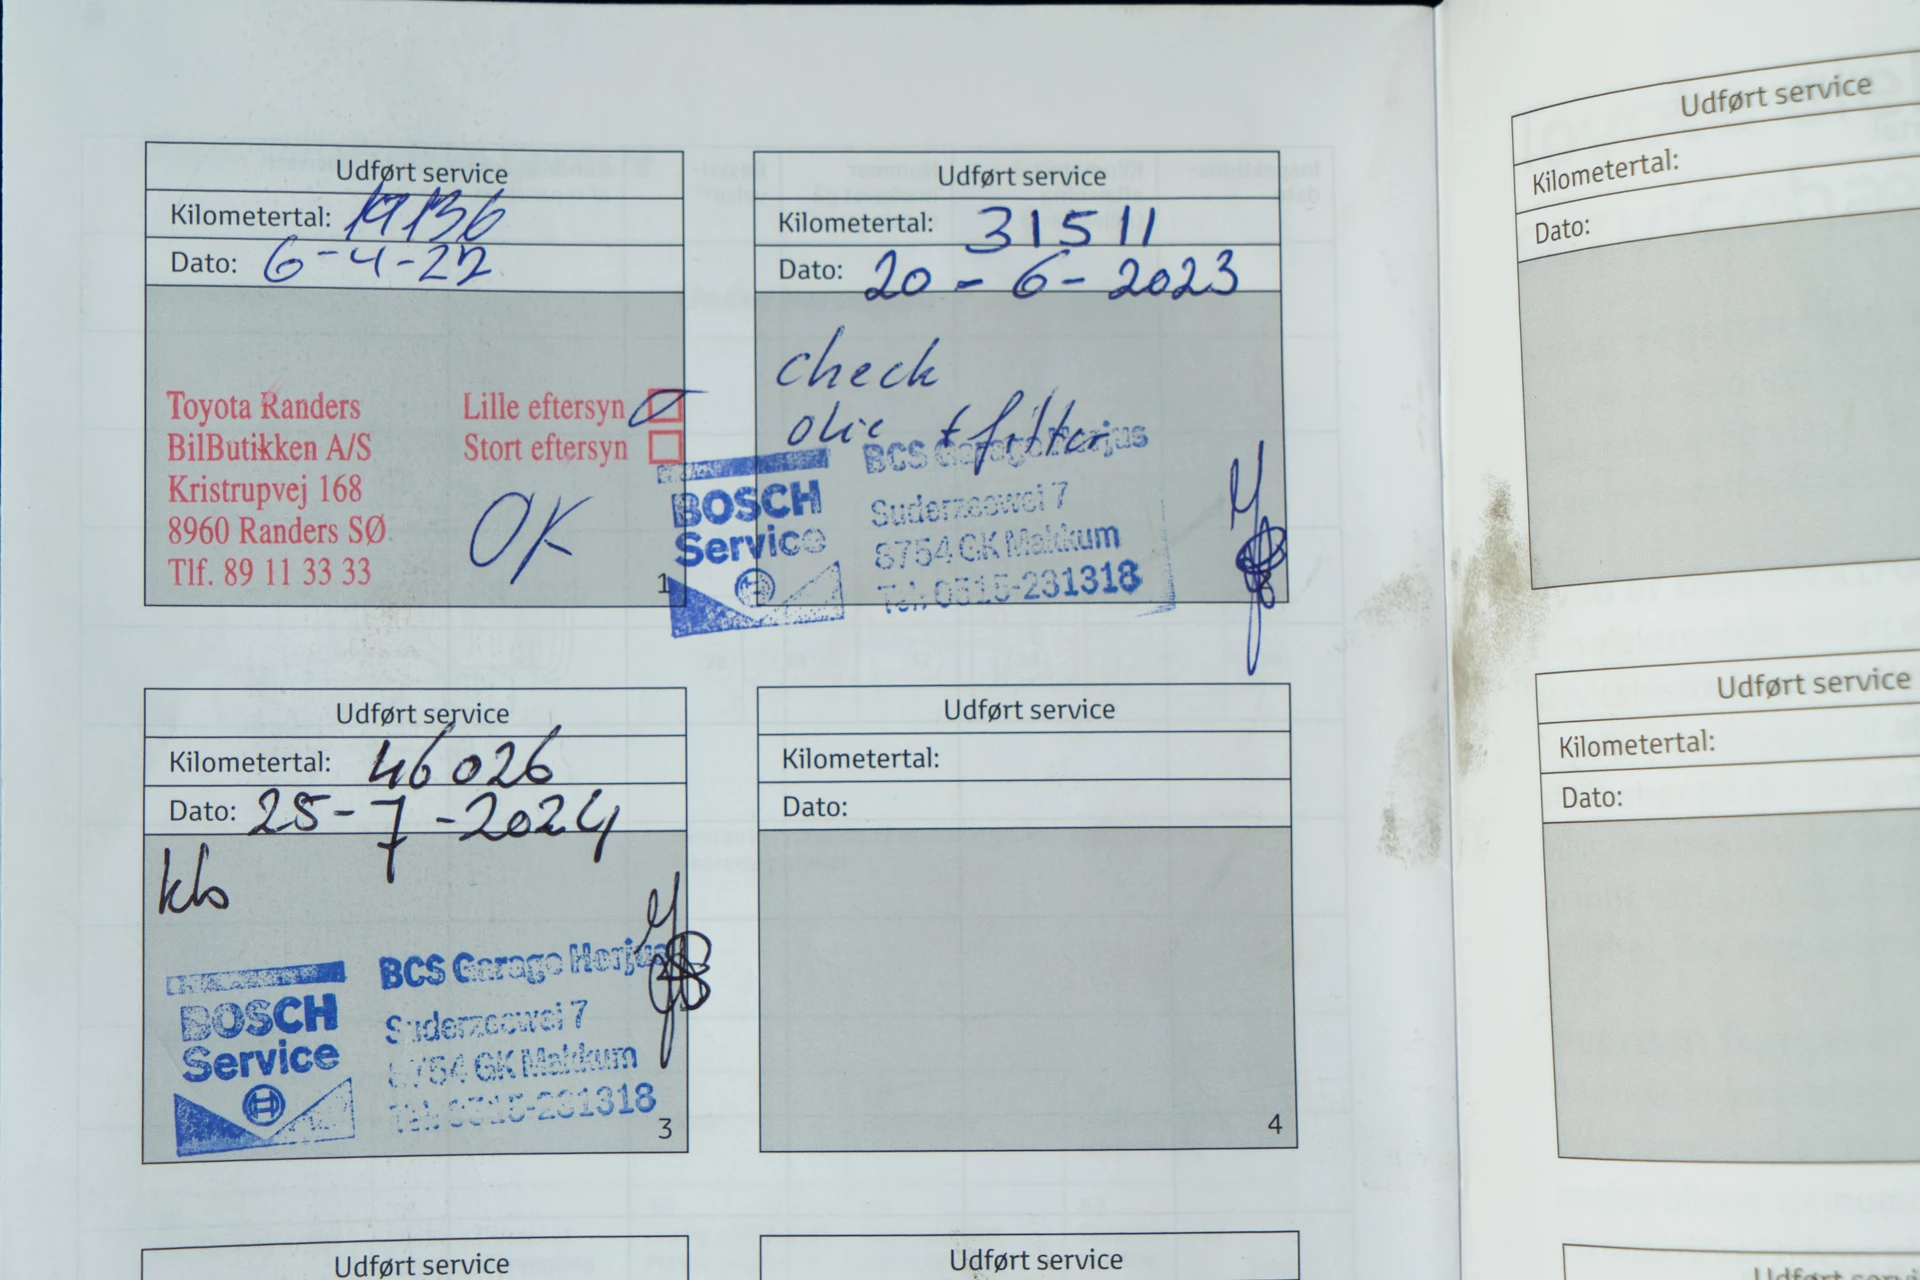 Udført service
Kilometertal: 19136
Dato: 6-4-22
Toyota Randers
BilButikken A/S
Kristrupvej 168
8960 Randers SØ
Tlf. 89 11 33 33
Lille eftersyn
Stort eftersyn
OK
1
Udført service
Kilometertal: 31511
Dato: 20-6-2023
check
olie + filter
BOSCH
Service
BCS Garage Herjus
Suderzeewei 7
8754 GK Makkum
Tel. 0515-231318
Udført service
Kilometertal: 46026
Dato: 25-7-2024
BOSCH
Service
BCS Garage Herjus
Suderzeewei 7
8754 GK Makkum
Tel. 0515-231318
3
Udført service
Kilometertal:
Dato:
4
Udført service
Udført service
Udført service
Kilometertal:
Dato:
Udført service
Kilometertal:
Dato:
Udført servi